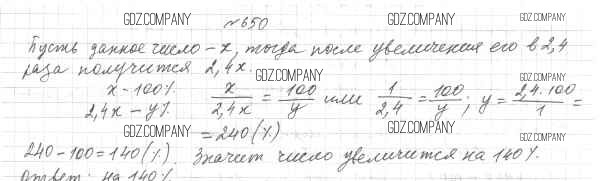 GDZ.COMPANY GDZ.COMPANY
№650
Пусть данное число – x, тогда после увеличения его в 2,4
раза получится 2,4x.
GDZ.COMPANY GDZ.COMPANY
x – 100%
2,4x – y%
x/2,4x = 100/y или 1/2,4 = 100/y; y = 2,4·100/1 =
= 240 (%)
GDZ.COMPANY GDZ.COMPANY GDZ.COMPANY
240 – 100 = 140 (%). Значит число увеличится на 140%.
Ответ: на 140%